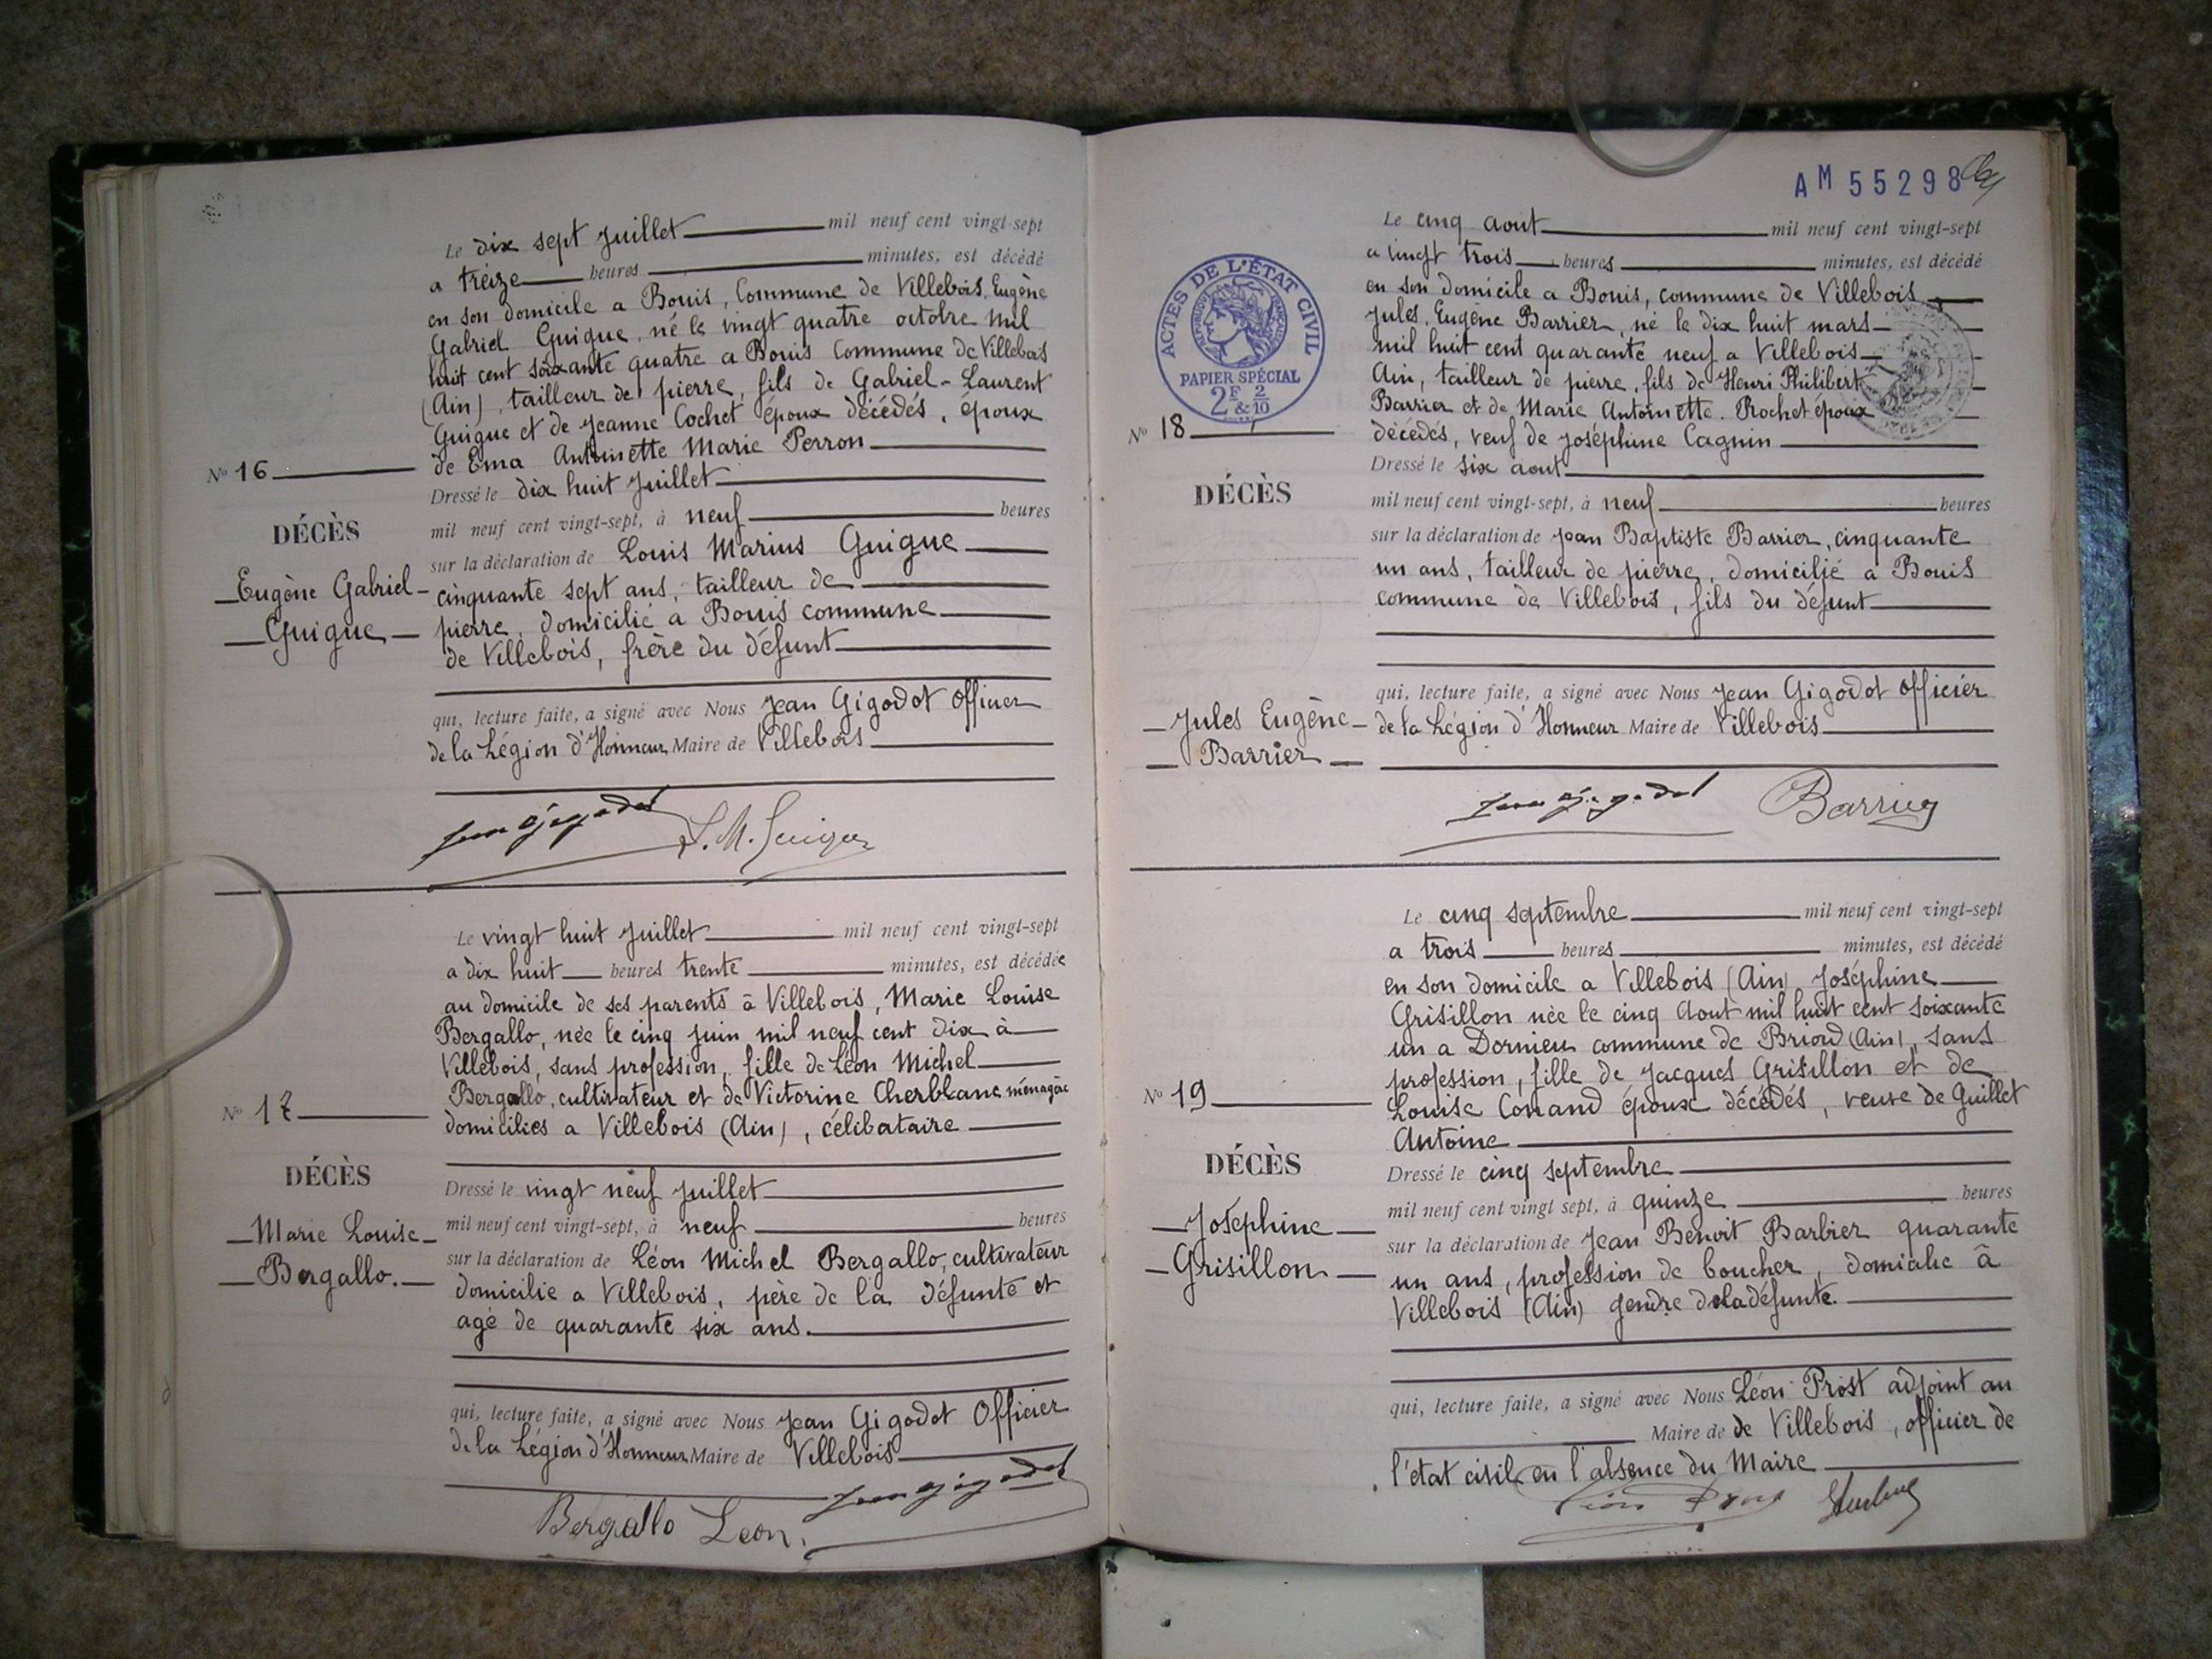 Le dix sept Juillet mil neuf cent vingt-sept
a treize heures minutes, est décédé
en son domicile a Bouis, Commune de Villebois, Eugène
Gabriel Guigue, né le vingt quatre octobre mil
huit cent soixante quatre a Bouis Commune de Villebois
(Ain), tailleur de pierre, fils de Gabriel-Laurent
Guigue et de Jeanne Cochet époux décédés, époux
de Ema Antoinette Marie Perron
Nº 16
Dressé le dix huit Juillet
DÉCÈS
mil neuf cent vingt-sept, à neuf heures
sur la déclaration de Louis Marius Guigue
Eugène Gabriel
cinquante sept ans, tailleur de
Guigue
pierre, domicilié a Bouis commune
de Villebois, frère du défunt
qui, lecture faite, a signé avec Nous Jean Gigodot Officier
de la Légion d'Honneur Maire de Villebois
Jean Gigodot L. M. Guigue
Le vingt huit Juillet mil neuf cent vingt-sept
a dix huit heures trente minutes, est décédée
au domicile de ses parents à Villebois, Marie Louise
Bergallo, née le cinq juin mil neuf cent dix à
Villebois, sans profession, fille de Léon Michel
Bergallo, cultivateur et de Victorine Cherblanc ménagère
Nº 17
domiciliés a Villebois (Ain), célibataire
DÉCÈS
Dressé le vingt neuf Juillet
Marie Louise
mil neuf cent vingt-sept, à neuf heures
Bergallo.
sur la déclaration de Léon Michel Bergallo, cultivateur
domicilié a Villebois, père de la défunte et
agé de quarante six ans.
qui, lecture faite, a signé avec Nous Jean Gigodot Officier
de la Légion d'Honneur Maire de Villebois
Jean Gigodot
Bergallo Leon.
AM 55298
Le cinq aout mil neuf cent vingt-sept
a vingt trois heures minutes, est décédé
en son domicile a Bouis, commune de Villebois
Jules, Eugène Barrier, né le dix huit mars
mil huit cent quarante neuf a Villebois
Ain, tailleur de pierre, fils de Henri Philibert
Barrier et de Marie Antoinette Rochet époux
décédés, veuf de Joséphine Cagnin
ACTES DE L'ÉTAT CIVIL
RÉPUBLIQUE FRANÇAISE
PAPIER SPÉCIAL
2F & 2/10
Nº 18
Dressé le six aout
DÉCÈS
mil neuf cent vingt-sept, à neuf heures
sur la déclaration de Jean Baptiste Barrier, cinquante
un ans, tailleur de pierre, domicilié a Bouis
commune de Villebois, fils du défunt
qui, lecture faite, a signé avec Nous Jean Gigodot Officier
Jules Eugène
de la Légion d'Honneur Maire de Villebois
Barrier
Jean Gigodot Barrier
Le cinq septembre mil neuf cent vingt-sept
a trois heures minutes, est décédé
en son domicile a Villebois (Ain) Joséphine
Grisillon née le cinq Aout mil huit cent soixante
un a Dornieu commune de Briord (Ain), sans
profession, fille de Jacques Grisillon et de
Nº 19
Louise Conand époux décédés, veuve de Guillet
Antoine
DÉCÈS
Dressé le cinq septembre
mil neuf cent vingt sept, à quinze heures
Joséphine
sur la déclaration de Jean Benoit Barbier quarante
Grisillon
un ans, profession de boucher, domicilié à
Villebois (Ain) gendre de la défunte.
qui, lecture faite, a signé avec Nous Léon Prost adjoint au
Maire de de Villebois, officier de
l'état civil en l'absence du Maire
Léon Prost